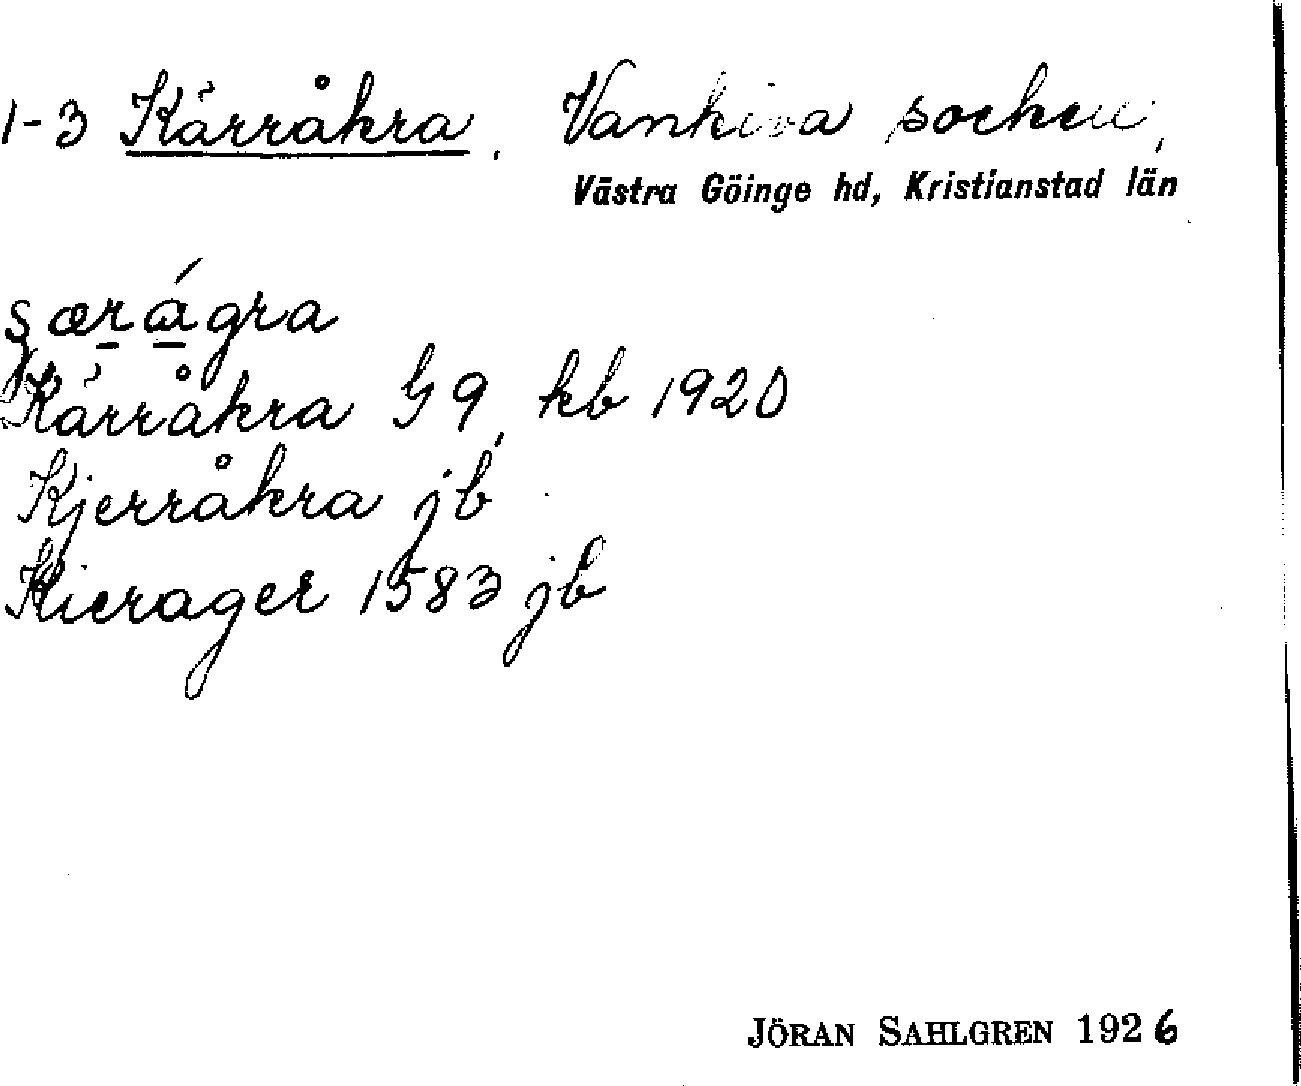 1-3 Kärråkra, Vankiva socken,
Västra Göinge hd, Kristianstad län
ʂær ágra
Kärråkra G 9, kb 1920
Kjerråkra jb
Kierager 1583 jb
JÖRAN SAHLGREN 1926